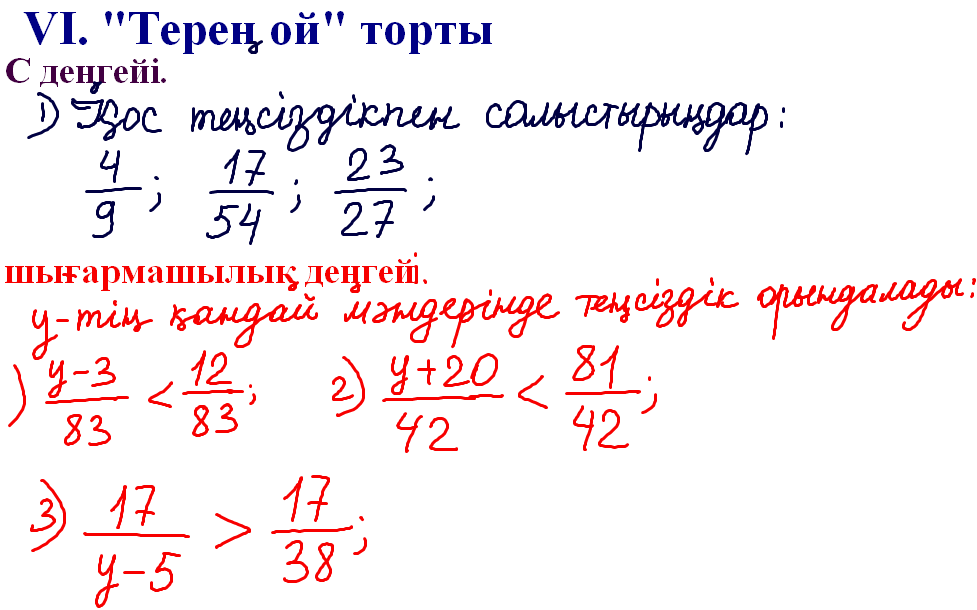 VI. "Терең ой" торты
С деңгейі.
1) Қос теңсіздікпен салыстырыңдар:
4/9; 17/54; 23/27;
шығармашылық деңгейі.
у-тің қандай мәндерінде теңсіздік орындалады:
) у-3/83 < 12/83; 2) у+20/42 < 81/42;
3) 17/у-5 > 17/38;